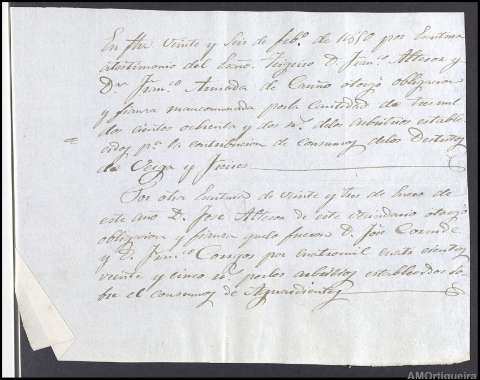 En fha veinte y seis de feb.º de 1850 por Escritura
a testimonio del Esno. D. Fran.co Alteoa y
D.n Fran.co Armada de Cariño otorgó obligacion
y fianza mancomunada por la cantidad de tres mil
dos cientos ochenta y dos r.s de los arbitrios estable
cidos p.a la contribucion de consumos de los Distritos
de Veiga y
Por otra Escritura de veinte y tres de Enero de
este año D. José Alteoa de este vecindario otorgó
obligacion y fianza fueron D. José
y D. Fran.co por cuatromil cuatro cientos
veinte y cinco r.s por los arbitrios establecidos so
bre el consumo de Aguardientes
AMOrtigueira